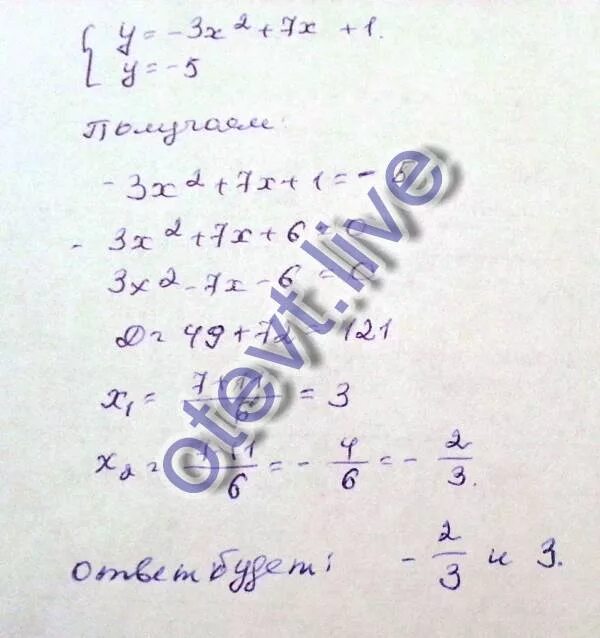 { y = -3x² + 7x + 1.
y = -5
Получаем:
-3x² + 7x + 1 = -5
-3x² + 7x + 6 = 0
3x² - 7x - 6 = 0
D = 49 + 72 = 121
x₁ = (7+11)/6 = 3
x₂ = (7-11)/6 = -4/6 = -2/3.
ответ будет: -2/3 и 3.
otevt.live